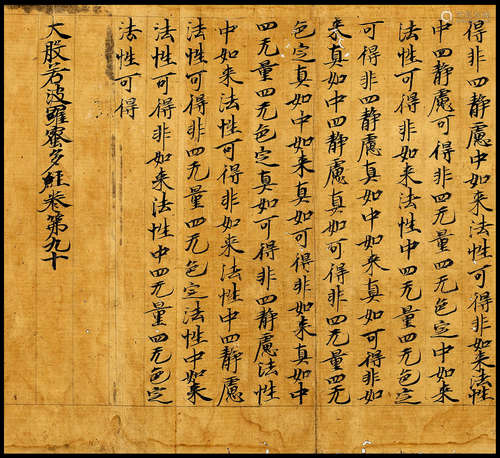 得非四静慮中如来法性可得非如来法性
中四静慮可得非四无量四无色定中如来
法性可得非如来法性中四无量四无色定
可得非四静慮真如中如来真如可得非如
来真如中四静慮真如可得非四无量四无
色定真如中如来真如可得非如来真如中
四无量四无色定真如可得非四静慮法性
中如来法性可得非如来法性中四静慮
法性可得非四无量四无色定法性中如来
法性可得非如来法性中四无量四无色定
法性可得
大般若波羅蜜多経卷第九十